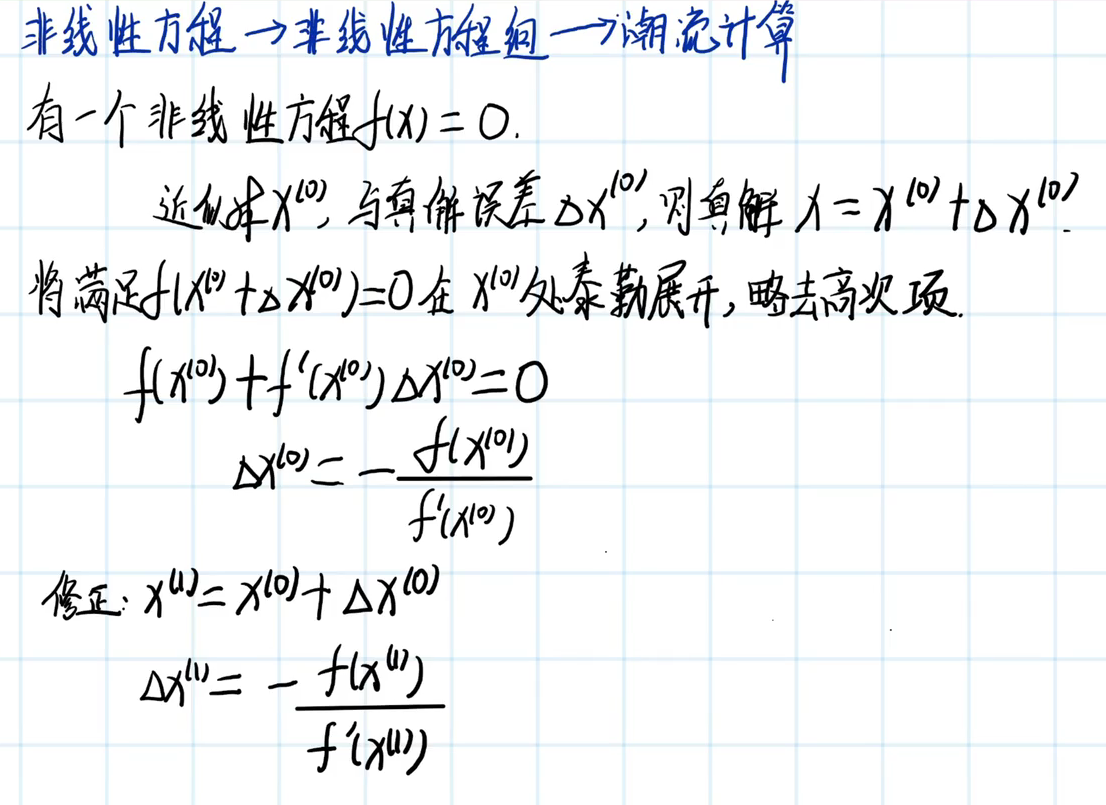 非线性方程→非线性方程组→潮流计算
有一个非线性方程f(x)=0.
近似解x⁽⁰⁾,与真解误差Δx⁽⁰⁾,则真解x=x⁽⁰⁾+Δx⁽⁰⁾.
将满足f(x⁽⁰⁾+Δx⁽⁰⁾)=0在x⁽⁰⁾处泰勒展开,略去高次项.
f(x⁽⁰⁾)+f'(x⁽⁰⁾)Δx⁽⁰⁾=0
Δx⁽⁰⁾=-f(x⁽⁰⁾)/f'(x⁽⁰⁾)
修正:x⁽¹⁾=x⁽⁰⁾+Δx⁽⁰⁾
Δx⁽¹⁾=-f(x⁽¹⁾)/f'(x⁽¹⁾)